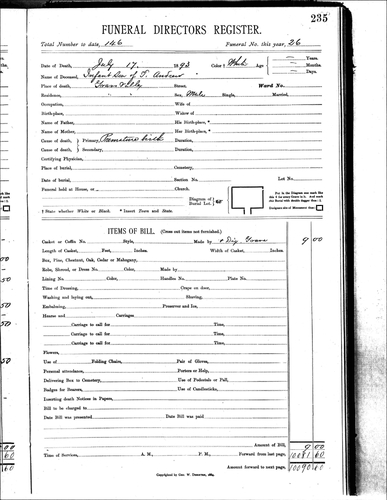 235
FUNERAL DIRECTORS REGISTER.
Total Number to date, 146 Funeral No. this year, 26
Date of Death, July 17. 1893 Color † Age Years.
Months.
Name of Deceased, Infant Son of T. Andrew " Days.
Place of death, Street, Ward No.
Residence, " " Sex, Male Single, Married.
Occupation, Wife of
Birth-place, Widow of
Name of Father, His Birth-place, *
Name of Mother, Her Birth-place, *
Cause of death, Primary, Premature birth Duration,
Cause of death, Secondary, Duration,
Certifying Physician,
Place of burial, Cemetery,
Date of burial, Section No. Lot No.
Funeral held at House, or Church.
† State whether White or Black. * Insert Town and State.
Diagram of Burial Lot.
Put in the Diagram one mark
ITEMS OF BILL. (Cross out items not furnished).
Casket or Coffin No. Style, Made by & Dig. Grave 9 00
Length of Casket, Feet, Inches. Width of Casket, Inches.
Box, Pine, Chestnut, Oak, Cedar or Mahogany,
Robe, Shroud, or Dress No. Color, Made by
Lining No. Color, Handles No. Plate No.
Time of Dressing, Crape on door,
Washing and laying out, Shaving,
Embalming, Preserver and Ice,
Hearse and Carriages
Carriages to call for Time,
Carriages to call for Time,
Carriages to call for Time,
Carriages to call for Time,
Flowers,
Use of Folding Chairs, Pair of Gloves,
Personal attendance, Porters or Help,
Delivering Box to Cemetery, Use of Pedestals or Pall,
Badges for Bearers, Use of Candlesticks,
Inserting death Notices in Papers,
Bill to be charged to
Date Bill was presented Date Bill was paid
Amount of Bill, 9 00
Time of Services, A. M., P. M., Forward from last page, 10081 60
Amount forward to next page, 10090 60